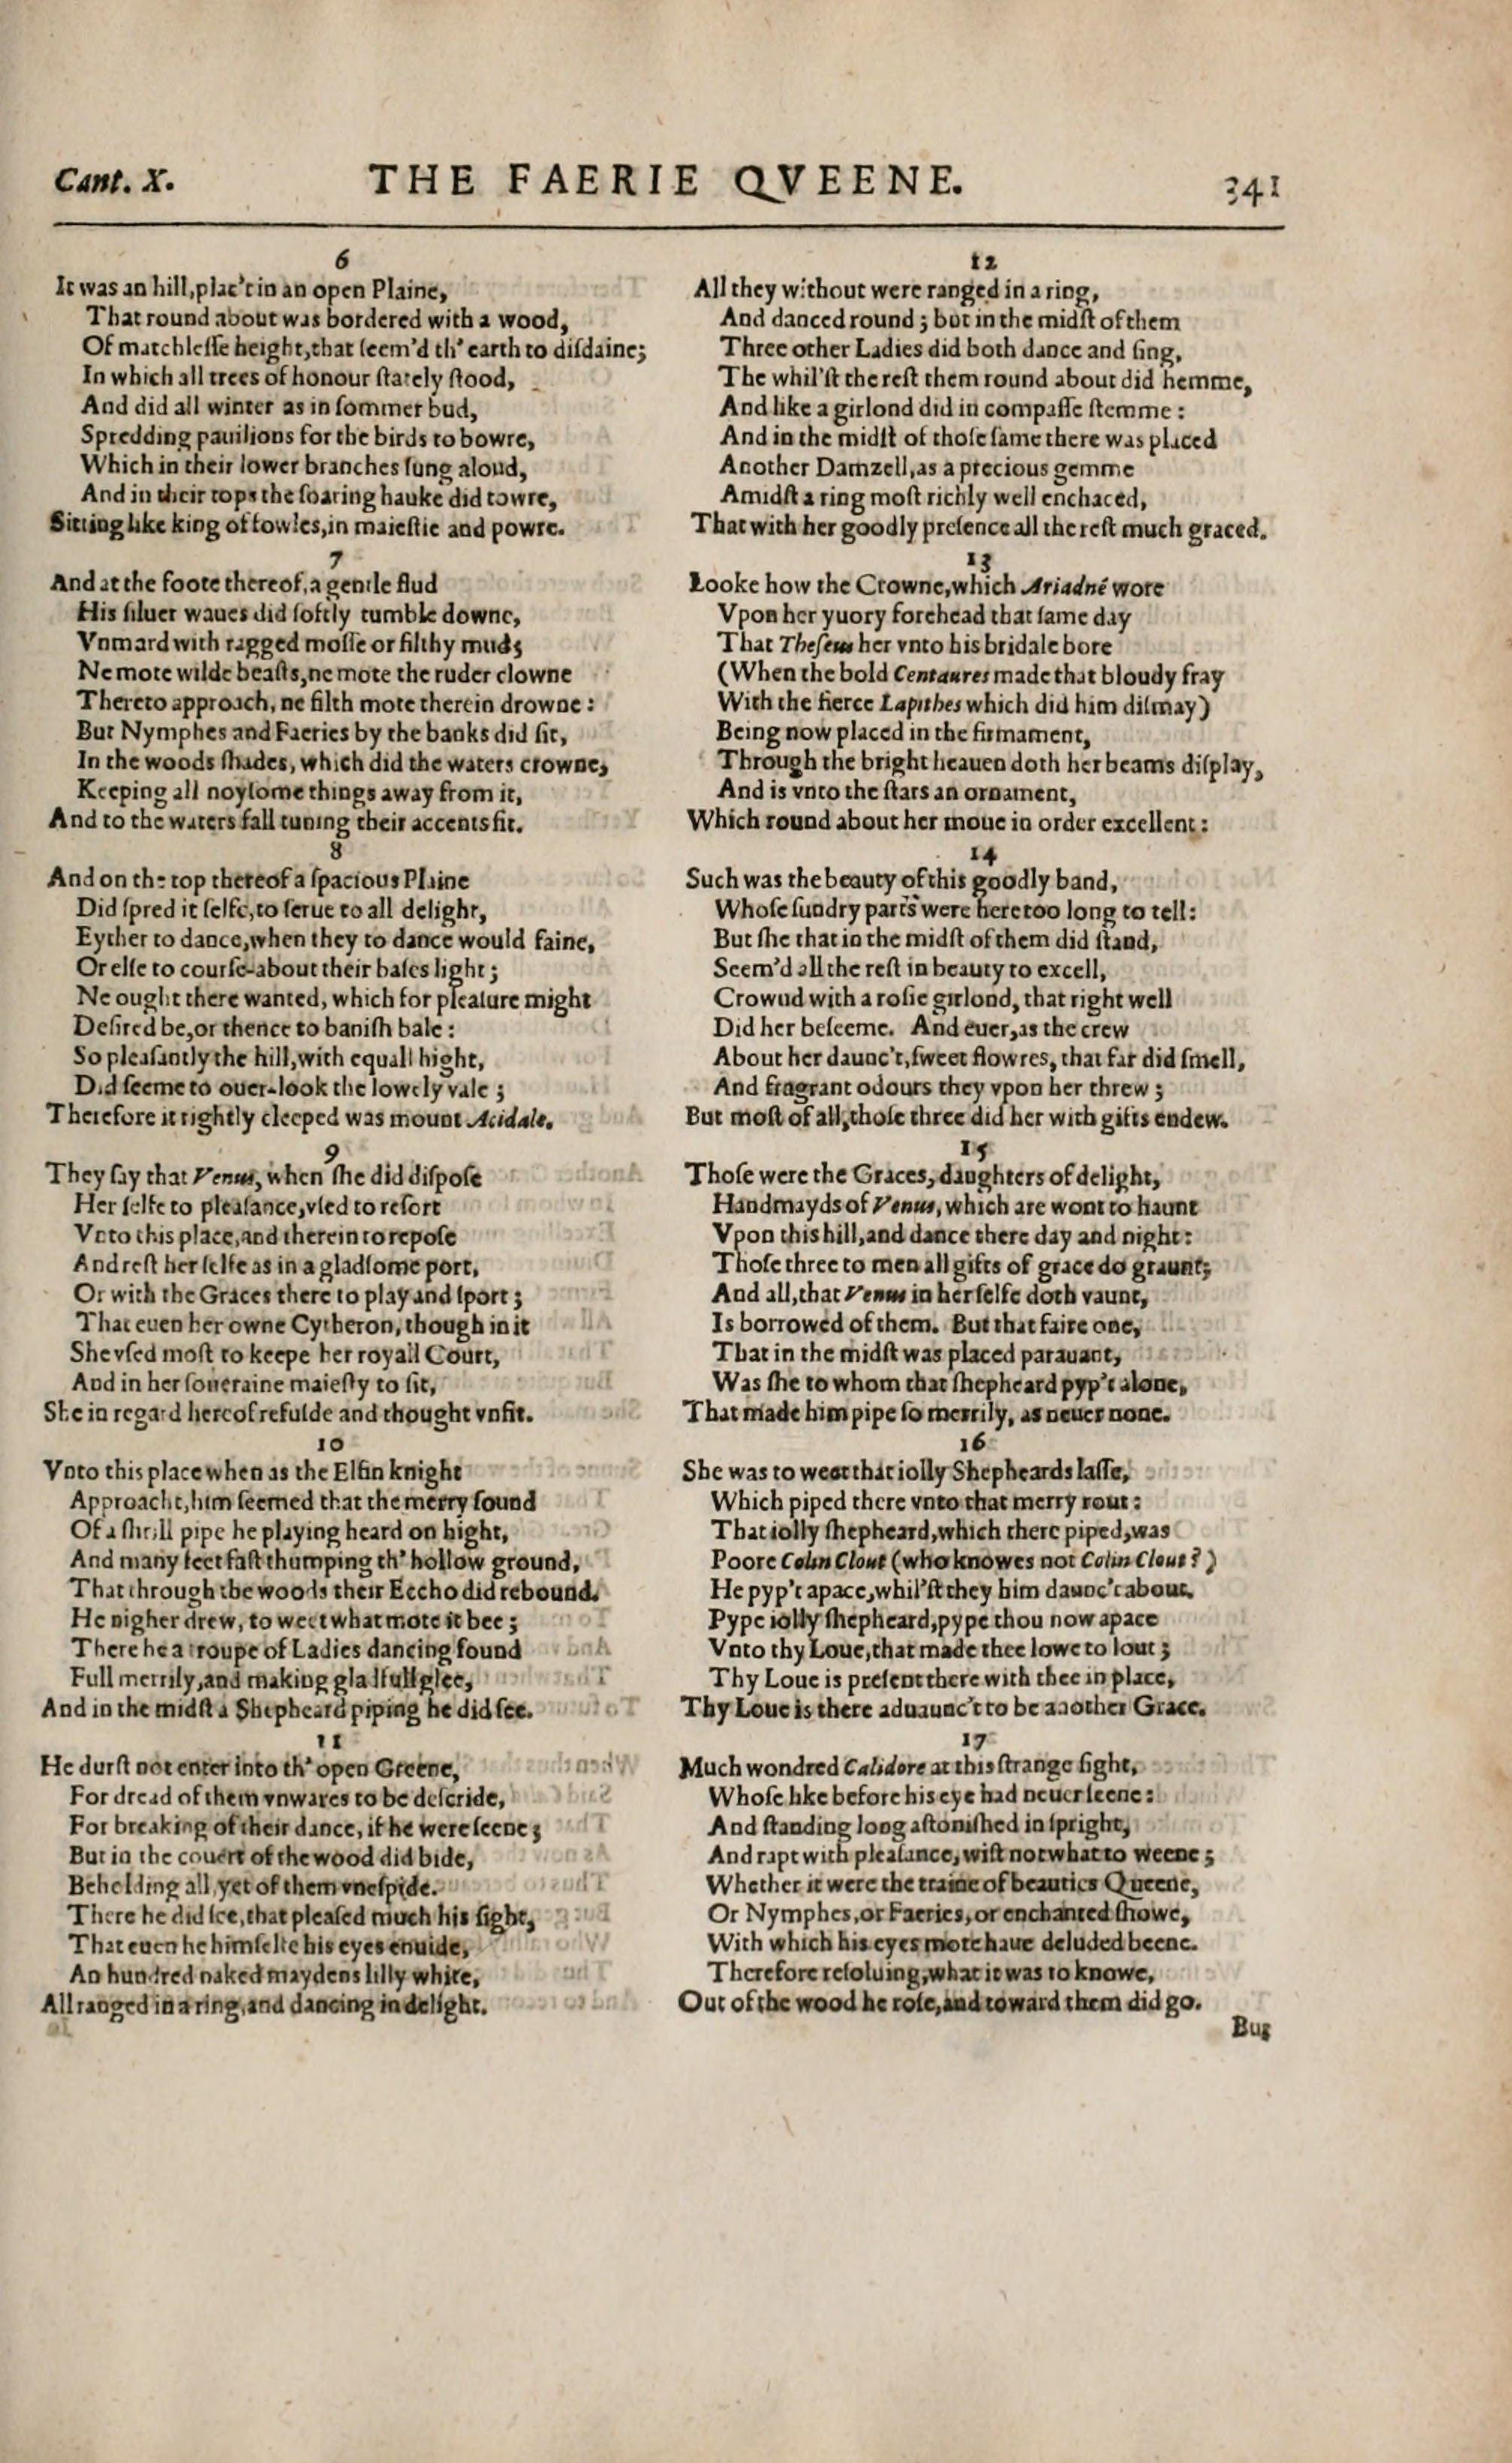 Cant. X.
THE FAERIE QVEENE.
341
6
It was an hill, plac't in an open Plaine,
That round about was bordered with a wood,
Of matchleſſe height, that ſeem'd th' earth to diſdaine;
In which all trees of honour ſtately ſtood,
And did all winter as in ſommer bud,
Spredding pauilions for the birds to bowre,
Which in their lower branches ſung aloud,
And in their tops the ſoaring hauke did towre,
Sitting like king of fowles, in maieſtie and powre.
7
And at the foote thereof, a gentle flud
His ſiluer waues did ſoftly tumble downe,
Vnmard with ragged moſſe or filthy mud;
Ne mote wilde beaſts, ne mote the ruder clowne
Thereto approach, ne filth mote therein drowne:
But Nymphes and Faeries by the banks did ſit,
In the woods ſhades, which did the waters crowne,
Keeping all noyſome things away from it,
And to the waters fall tuning their accents fit.
8
And on the top thereof a ſpacious Plaine
Did ſpred it ſelfe, to ſerue to all delight,
Eyther to dance, when they to dance would faine,
Or elſe to courſe-about their baſes light;
Ne ought there wanted, which for pleaſure might
Deſired be, or thence to baniſh bale:
So pleaſantly the hill, with equall hight,
Did ſeeme to ouer-look the lowely vale;
Therefore it rightly cleeped was mount Acidale.
9
They ſay that Venus, when ſhe did diſpoſe
Her ſelfe to pleaſance, vſed to reſort
Vnto this place, and therein to repoſe
And reſt her ſelfe as in a gladſome port,
Or with the Graces there to play and ſport;
That euen her owne Cytheron, though in it
She vſed moſt to keepe her royall Court,
And in her ſoueraine maieſty to ſit,
She in regard hereof refuſde and thought vnfit.
10
Vnto this place when as the Elfin knight
Approacht, him ſeemed that the merry ſound
Of a ſhrill pipe he playing heard on hight,
And many feet faſt thumping th' hollow ground,
That through the woods their Eccho did rebound.
He nigher drew, to weet what mote it bee;
There he a troupe of Ladies dancing found
Full merrily, and making gladfull glee,
And in the midſt a Shepheard piping he did ſee.
11
He durſt not enter into th' open Greene,
For dread of them vnwares to be deſcride,
For breaking of their dance, if he were ſeene;
But in the couert of the wood did bide,
Beholding all, yet of them vneſpide.
There he did ſee, that pleaſed much his ſight,
That euen he himſelfe his eyes enuide,
An hundred naked maydens lilly white,
All ranged in a ring, and dancing in delight.
12
All they without were ranged in a ring,
And danced round; but in the midſt of them
Three other Ladies did both dance and ſing,
The whil'ſt the reſt them round about did hemme,
And like a girlond did in compaſſe ſtemme:
And in the midſt of thoſe ſame there was placed
Another Damzell, as a precious gemme
Amidſt a ring moſt richly well enchaced,
That with her goodly preſence all the reſt much graced.
13
Looke how the Crowne, which Ariadné wore
Vpon her yuory forehead that ſame day
That Theſeus her vnto his bridale bore
(When the bold Centaures made that bloudy fray
With the fierce Lapithes which did him diſmay)
Being now placed in the firmament,
Through the bright heauen doth her beams diſplay,
And is vnto the ſtars an ornament,
Which round about her moue in order excellent:
14
Such was the beauty of this goodly band,
Whoſe ſundry parts were here too long to tell:
But ſhe that in the midſt of them did ſtand,
Seem'd all the reſt in beauty to excell,
Crownd with a roſie girlond, that right well
Did her beſeeme. And euer, as the crew
About her daunc't, ſweet flowres, that far did ſmell,
And fragrant odours they vpon her threw;
But moſt of all, thoſe three did her with gifts endew.
15
Thoſe were the Graces, daughters of delight,
Handmayds of Venus, which are wont to haunt
Vpon this hill, and dance there day and night:
Thoſe three to men all gifts of grace do graunt;
And all, that Venus in her ſelfe doth vaunt,
Is borrowed of them. But that faire one,
That in the midſt was placed parauant,
Was ſhe to whom that ſhepheard pyp't alone,
That made him pipe ſo merrily, as neuer none.
16
She was to weet that iolly Shepheards laſſe,
Which piped there vnto that merry rout:
That iolly ſhepheard, which there piped, was
Poore Colin Clout (who knowes not Colin Clout?)
He pyp't apace, whil'ſt they him daunc't about.
Pype iolly ſhepheard, pype thou now apace
Vnto thy Loue, that made thee lowe to lout;
Thy Loue is preſent there with thee in place,
Thy Loue is there aduaunc't to be another Grace.
17
Much wondred Calidore at this ſtrange ſight,
Whoſe like before his eye had neuer ſeene:
And ſtanding long aſtoniſhed in ſpright,
And rapt with pleaſance, wiſt not what to weene;
Whether it were the traine of beauties Queene,
Or Nymphes, or Faeries, or enchanted ſhowe,
With which his eyes mote haue deluded beene.
Therefore reſoluing, what it was to knowe,
Out of the wood he roſe, and toward them did go.
But